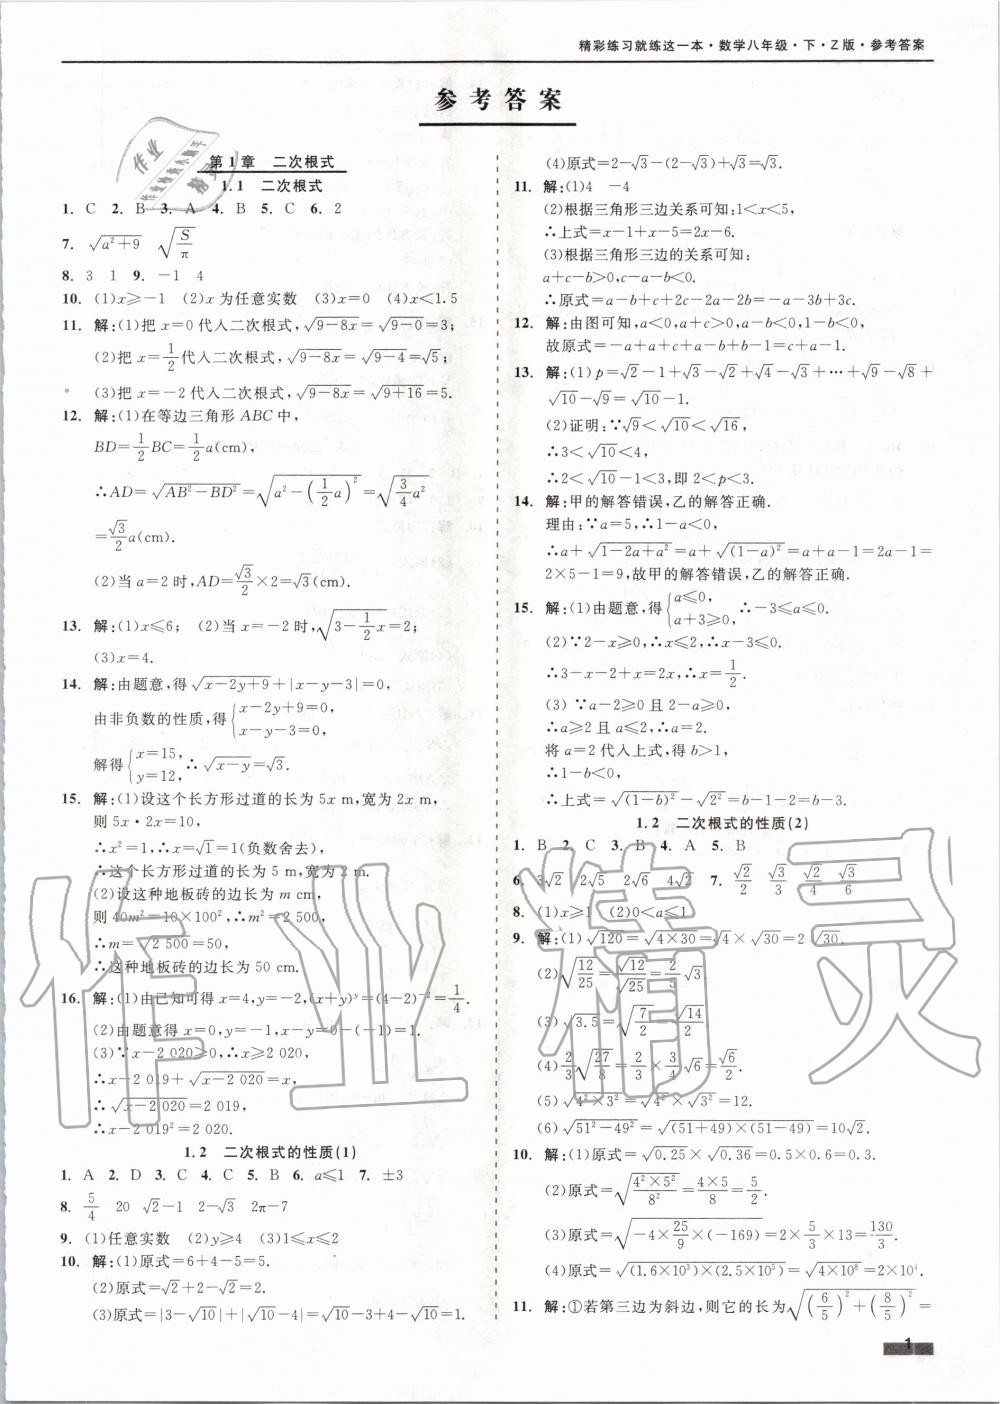 精彩练习就练这一本·数学八年级·下·Z版·参考答案
参考答案
第1章 二次根式
1.1 二次根式
1. C 2. B 3. A 4. B 5. C 6. 2
7. √(a²+9) √(S/π)
8. 3 1 9. -1 4
10. (1)x≥-1 (2)x为任意实数 (3)x=0 (4)x<1.5
11. 解:(1)把x=0代入二次根式,√(9-8x)=√(9-0)=3;
(2)把x=1/2代入二次根式,√(9-8x)=√(9-4)=√5;
(3)把x=-2代入二次根式,√(9-8x)=√(9+16)=5.
12. 解:(1)在等边三角形ABC中,
BD=1/2BC=1/2a(cm).
∴AD=√(AB²-BD²)=√(a²-(1/2a)²)=√(3/4a²)
=√3/2a(cm).
(2)当a=2时,AD=√3/2×2=√3(cm).
13. 解:(1)x≤6; (2)当x=-2时,√(3-1/2x)=2;
(3)x=4.
14. 解:由题意,得√(x-2y+9)+|x-y-3|=0,
由非负数的性质,得{x-2y+9=0, x-y-3=0,
解得{x=15, y=12, ∴√(x-y)=√3.
15. 解:(1)设这个长方形过道的长为5x m,宽为2x m,
则5x·2x=10,
∴x²=1,∴x=√1=1(负数舍去),
∴这个长方形过道的长为5 m,宽为2 m.
(2)设这种地板砖的边长为m cm,
则40m²=10×100²,∴m²=2 500,
∴m=√(2 500)=50,
∴这种地板砖的边长为50 cm.
16. 解:(1)由已知可得x=4,y=-2,(x+y)^y=(4-2)⁻²=1/4.
(2)由题意得x=0,y=-1,x-y=0-(-1)=1.
(3)∵x-2 020≥0,∴x≥2 020,
∴x-2 019+√(x-2 020)=x,
∴√(x-2 020)=2 019,
∴x-2 019²=2 020.
1.2 二次根式的性质(1)
1. A 2. D 3. C 4. C 5. B 6. a≤1 7. ±3
8. 5/4 20 √2-1 2-√3 2π-7
9. (1)任意实数 (2)y≥4 (3)1≤x≤2
10. 解:(1)原式=6+4-5=5.
(2)原式=√2+2-√2=2.
(3)原式=|3-√10|+|√10-4|=√10-3+4-√10=1.
(4)原式=2-√3-(2-√3)+√3=√3.
11. 解:(1)4 -4
(2)根据三角形三边关系可知:1<x<5,
∴上式=x-1+x-5=2x-6.
(3)根据三角形三边的关系可知:
a+c-b>0,c-a-b<0.
∴原式=a-b+c+2c-2a-2b=-a-3b+3c.
12. 解:由图可知,a<0,a+c>0,a-b<0,1-b<0,
故原式=-a+a+c+a-b+b-1=c+a-1.
13. 解:(1)p=√2-1+√3-√2+√4-√3+…+√9-√8+
√10-√9=√10-1.
(2)证明:∵√9<√10<√16,
∴3<√10<4,
∴2<√10-1<3,即2<p<3.
14. 解:甲的解答错误,乙的解答正确.
理由:∵a=5,∴1-a<0,
∴a+√(1-2a+a²)=a+√((1-a)²)=a+a-1=2a-1=
2×5-1=9,故甲的解答错误,乙的解答正确.
15. 解:(1)由题意,得{a≤0, a+3≥0, ∴-3≤a≤0.
(2)∵2-x≥0,∴x≤2,∴x-3≤0,
∴3-x-2+x=2x,∴x=1/2.
(3)∵a-2≥0且2-a≥0,
∴a≥2且a≤2,∴a=2.
将a=2代入上式,得b>1,
∴1-b<0,
∴上式=√((1-b)²)-√(2²)=b-1-2=b-3.
1.2 二次根式的性质(2)
1. B 2. C 3. B 4. A 5. B
6. 3√2 2√5 2√6 4√2 7. √2/2 √3/3 √2/4 √3/6
8. (1)x≥1 (2)0<a≤1
9. 解:(1)√120=√(4×30)=√4×√30=2√30.
(2)√(12/25)=√12/√25=2/5√3.
(3)√3.5=√(7/2)=√14/2.
(4)2/3√(27/8)=2/3×3/4√6=√6/2.
(5)√(4²×3²)=√4²×√3²=12.
(6)√(51²-49²)=√((51+49)×(51-49))=10√2.
10. 解:(1)原式=√0.25×√0.36=0.5×0.6=0.3.
(2)原式=√(4²×5²/8²)=4×5/8=5/2.
(3)原式=√(-4×25/9×(-169))=2×5/3×13=130/3.
(4)原式=√((1.6×10³)×(2.5×10⁵))=√(4×10⁸)=2×10⁴.
11. 解:①若第三边为斜边,则它的长为√((6/5)²+(8/5)²)=
1
作业精灵